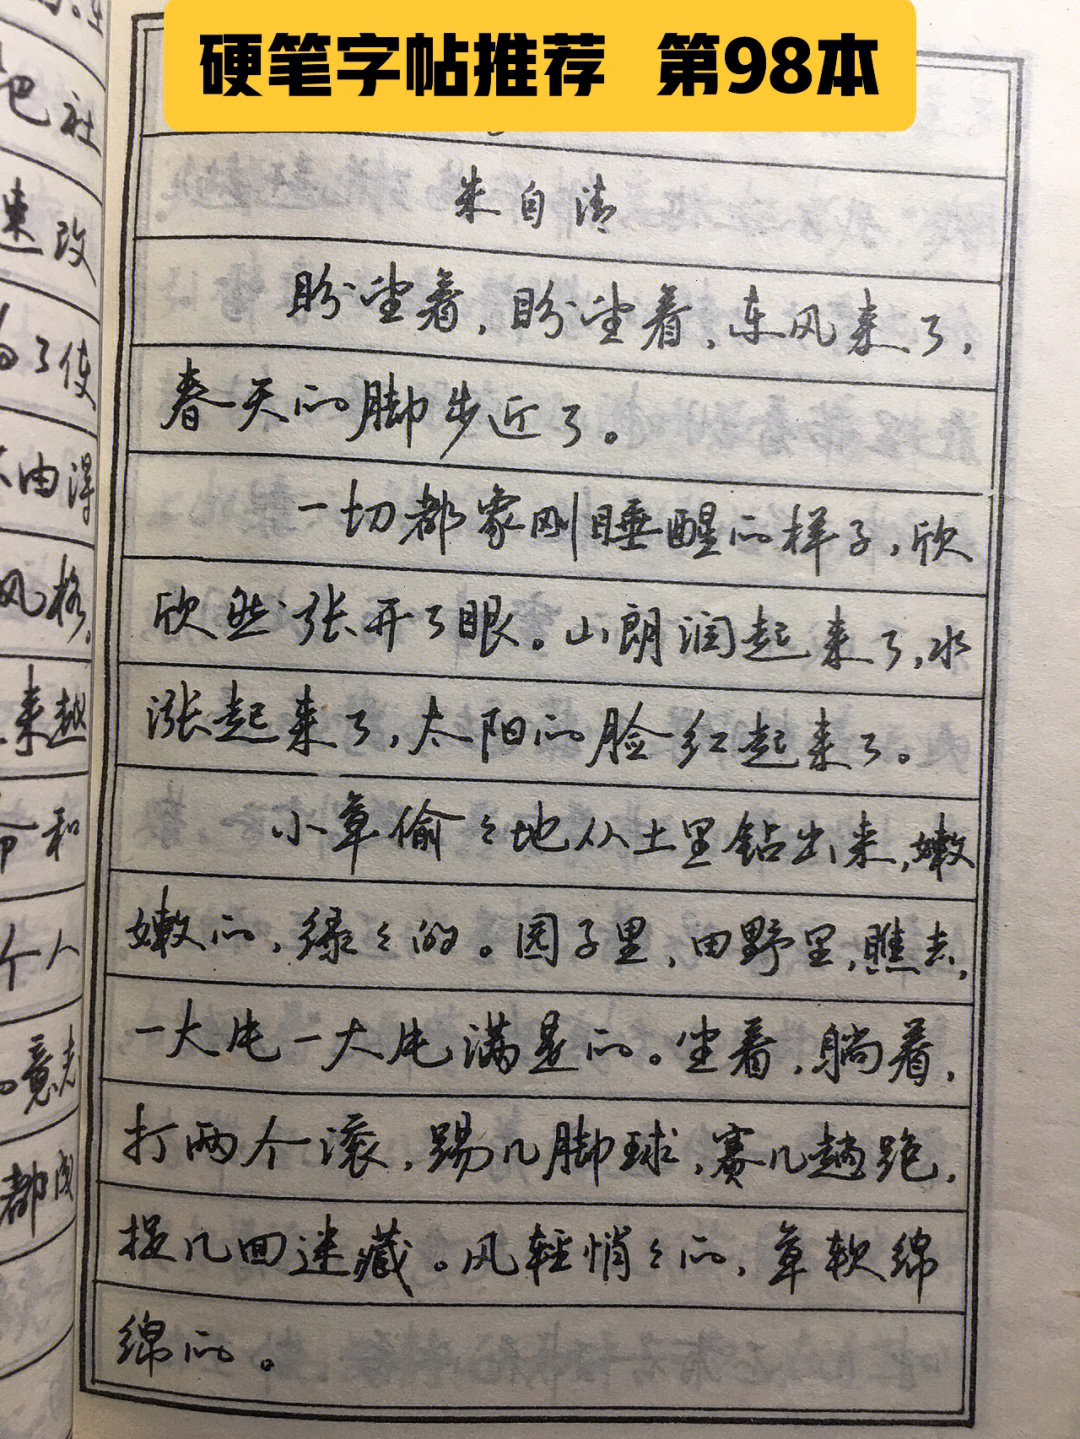 硬笔字帖推荐 第98本
朱自清
盼望着，盼望着，东风来了，
春天的脚步近了。
一切都象刚睡醒的样子，欣
欣然张开了眼。山朗润起来了，水
涨起来了，太阳的脸红起来了。
小草偷々地从土里钻出来，嫩
嫩的，绿々的。园子里，田野里，瞧去，
一大片一大片满是的。坐着，躺着，
打两个滚，踢几脚球，赛几趟跑，
捉几回迷藏。风轻悄々的，草软绵
绵的。
吧社
速改
了使
不由得
风格。
来越
和
个人
意志
都成